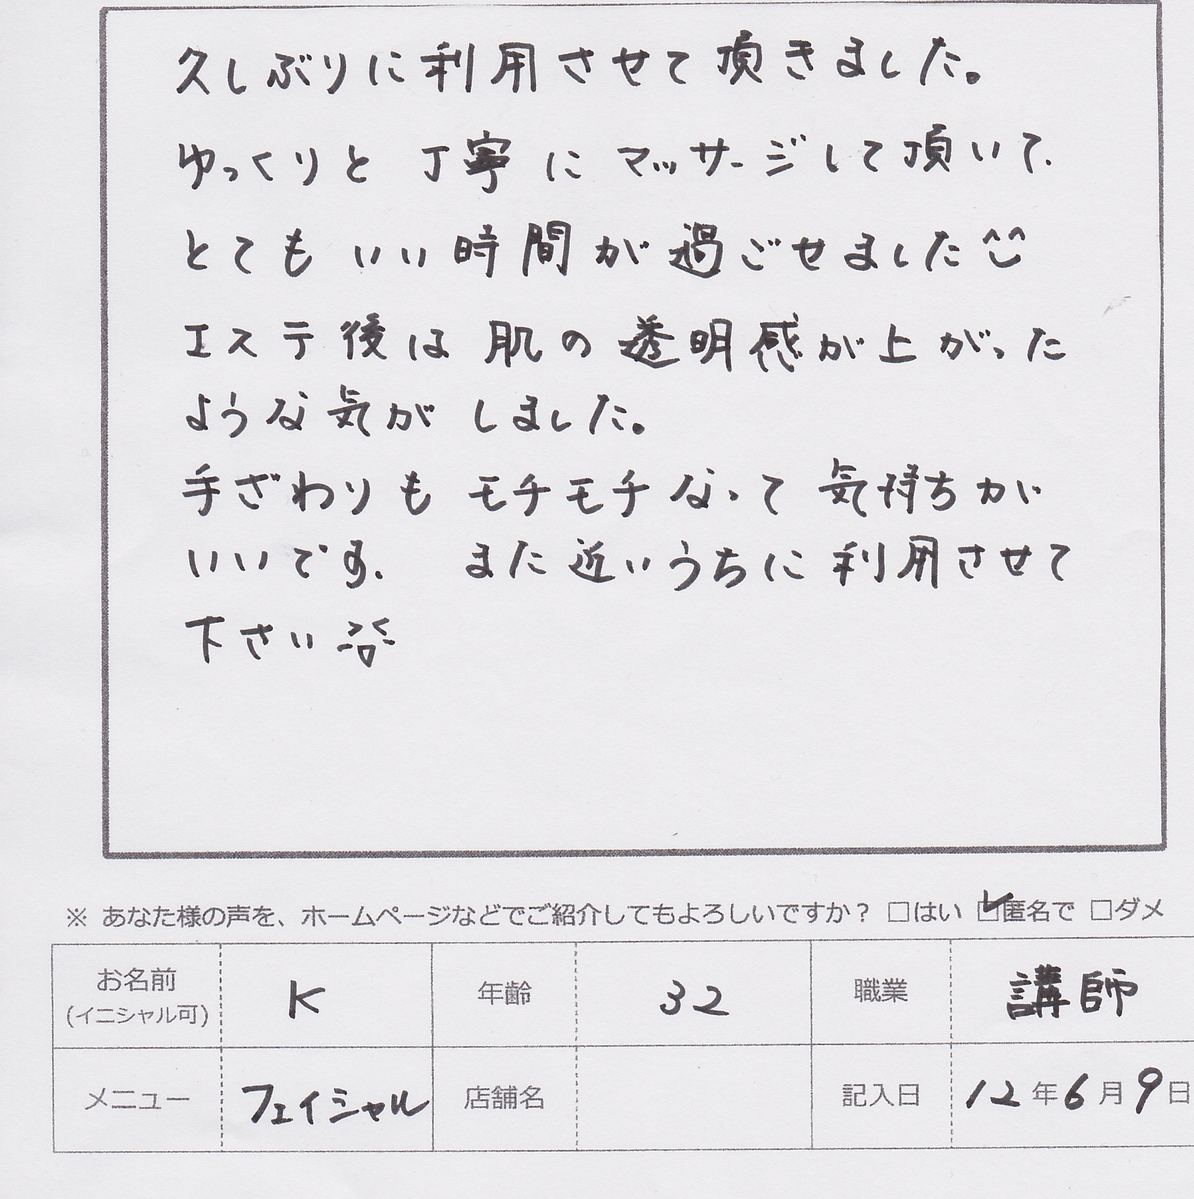 久しぶりに利用させて頂きました。
ゆっくりと丁寧にマッサージして頂いて、
とてもいい時間が過ごせました^^
エステ後は肌の透明感が上がった
ような気がしました。
手ざわりもモチモチなって気持ちが
いいです。また近いうちに利用させて
下さい
※ あなた様の声を、ホームページなどでご紹介してもよろしいですか？ □はい ☑匿名で □ダメ
お名前 (イニシャル可) K 年齢 32 職業 講師
メニュー フェイシャル 店舗名 記入日 12年6月9日